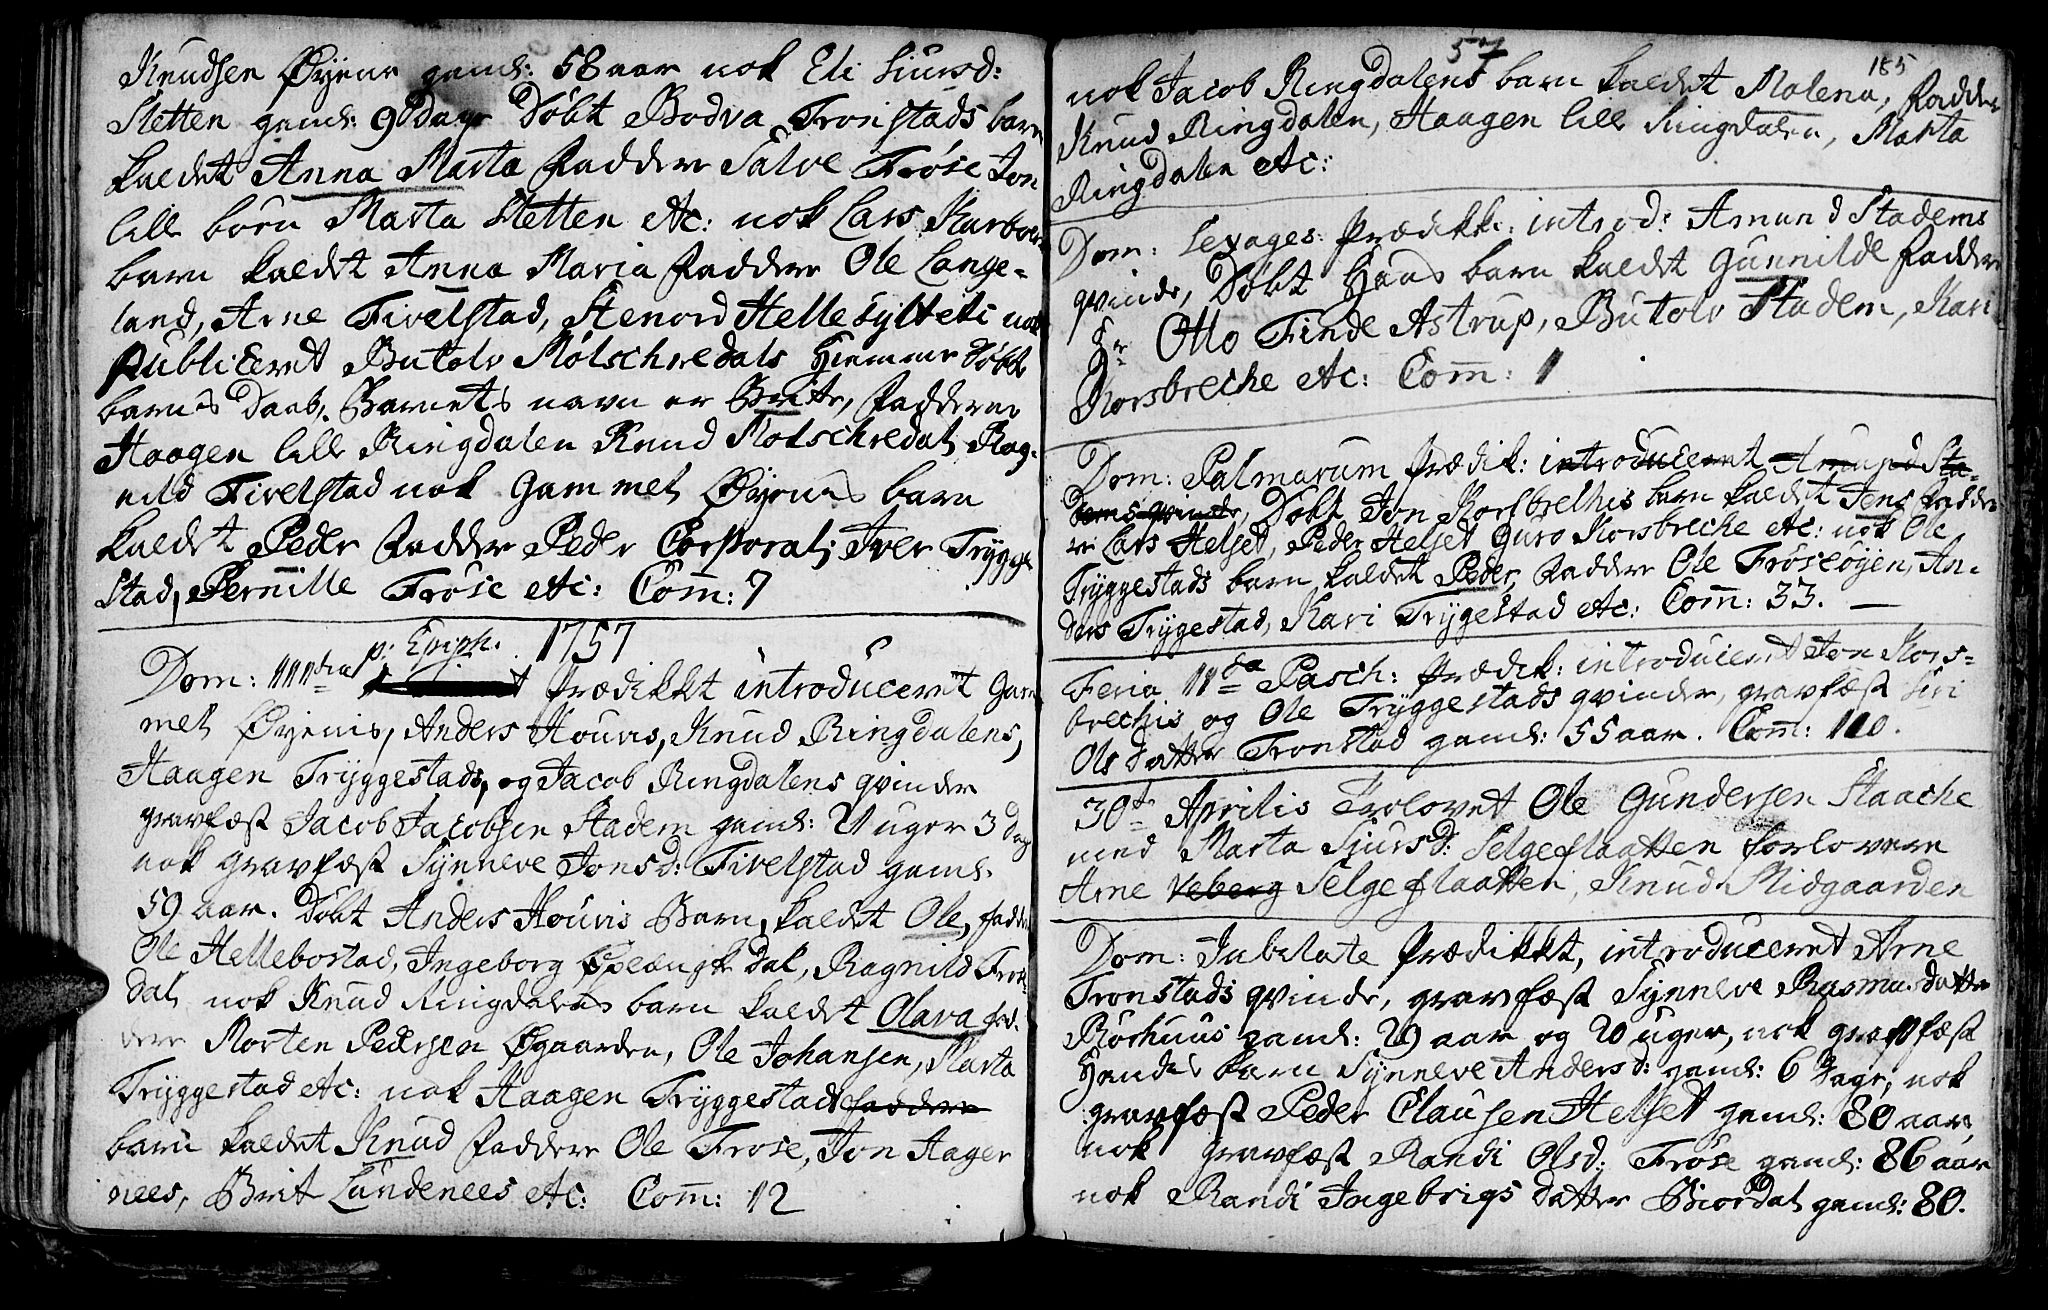 Knudsen Øyene gaml: 58 aar nok Eli Siursd:
Sletten gaml: 9 Dage Døbt Bodva Tronstads barn
kaldet Anna Marta Faddere Salve Frøse Jon
lille børn Marta Sletten etc: nok Lars Kurboe
barn kaldet Anna Maria Faddere Ole Lange-
land, Arne Fivelstad, Stenord Hellesylt etc nok
Publiceret Butolv Mølschredals Hiemme Døbte
barns Daab, Barnets navn er Brite, Fadderne
Haagen lille Ringdalen Knud Molschredal Rag-
nild Fivelstad nok Gammel Øyenes barn
kaldet Peder Faddere Peder Corporal; Iver Trygge
stad, Pernille Frøse etc: Com: 7
Dom: IIItia p: Epiph. 1757
Prædikket introduceret Gam
mel Øyenis, Anders Houvis, Knud Ringdalens,
Haagen Tryggestads, og Jacob Ringdalens qvinder
gravfæst Jacob Jacobsen Stadem gaml: 2 uger 3 dag
nok gravfæst Synneve Jonsd: Fivelstad gaml.
59 aar. Døbt Anders Houvis Barn, kaldet Ole, fadde
Ole Hellebostad, Ingeborg dal, Ragnild
dal nok Knud Ringdalens barn kaldet Olava fad.
dere Morten Pedersen Øgaarden, Ole Johansen, Marta
Tryggestad etc: nok Haagen Tryggestads faddere
barn kaldet Knud Faddere Ole Frose, Jon Hager
nees, Brit Lundenees etc: Com: 12
57 185
nok Jacob Ringdalens barn kaldet Malena, Fadder
Knud Ringdalen, Haagen lille Ringdalen, Marta
Ringdalen etc:
Dom: Sexages: Prædikk: introd: Amund Stadems
qvinde, Døbt Hans barn kaldet Gunnilde Fadder
Hr Otto Finde Astrup, Butolv Stadem, Kari
Korsbreche etc: Com: 1
Dom: Palmarum Prædik: introduceret Amund Sta-
dems qvinde, Døbt Jon Korsbrechis barn kaldet Jens Fadde
re Lars Helset, Peder Helset Guro Korsbreche etc: nok Ole
Tryggestads barn kaldet Peder Faddere Ole Frøseøyen, An-
ders Trygestad, Kari Trygestad etc: Com: 33.
Feria IIda Pasch: Prædik: introduceret Jon Kors-
brechis og Ole Tryggestads qvinder, gravfæst Siri
Ols datter Tronstad gaml: 55 aar. Com: 110.
30te Aprilis Trolovet Ole Gundersen Staache
med Marta Siursd: Selgeflaatten forlovere
Arne Veberg Selgeflaatten, Knud Midgaarden
Dom: Jubilate Prædikket, introduceret Arne
Tronstads qvinde, gravfæst Synneve Rasmus datter
Rørhuus gaml: 29 aar og 20 uger, nok gravfæst
Hendes barn Synneve Andersd: gaml: 6 Dage, nok
gravfæst Peder Clausen Helset gaml: 80 aar,
nok gravfæst Randi Olsd: Frøse gaml: 86 aar
nok Randi Ingebrigs datter Biordal gaml: 80.